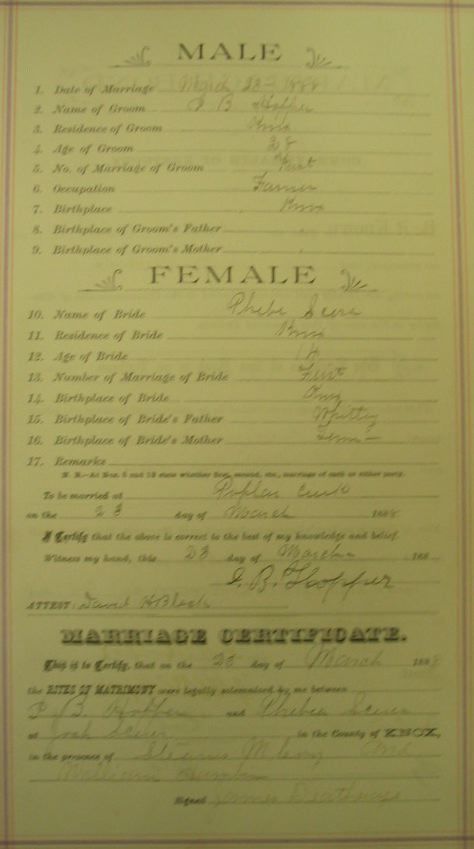 MALE
1. Date of Marriage March 23 1888
2. Name of Groom B Hopper
3. Residence of Groom Knox
4. Age of Groom 28
5. No. of Marriage of Groom First
6. Occupation Farmer
7. Birthplace Knox
8. Birthplace of Groom's Father
9. Birthplace of Groom's Mother
FEMALE
10. Name of Bride Phebe
11. Residence of Bride Knox
12. Age of Bride
13. Number of Marriage of Bride First
14. Birthplace of Bride Knox
15. Birthplace of Bride's Father Whitley
16. Birthplace of Bride's Mother Tenn
17. Remarks
N. B.—At Nos. 5 and 13 state whether first, second, etc., marriage of each or either party.
To be married at Poplar
on the 23 day of March 1888
I Certify that the above is correct to the best of my knowledge and belief.
Witness my hand, this 23 day of March 188
B. Hopper
ATTEST: David H Black
MARRIAGE CERTIFICATE.
This is to Certify, that on the 23 day of March 1888
the RITES OF MATRIMONY were legally solemnized by me between
B. Hopper and Phebe
at Josh in the County of KNOX,
in the presence of
William
Signed James